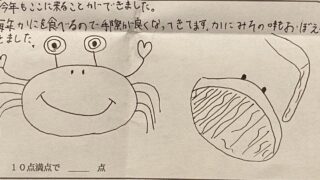 今年もここに来ることができました。
毎年かにを食べるので手際が良くなってきてます。かにみその味もおぼえ
きました。
10点満点で ____ 点